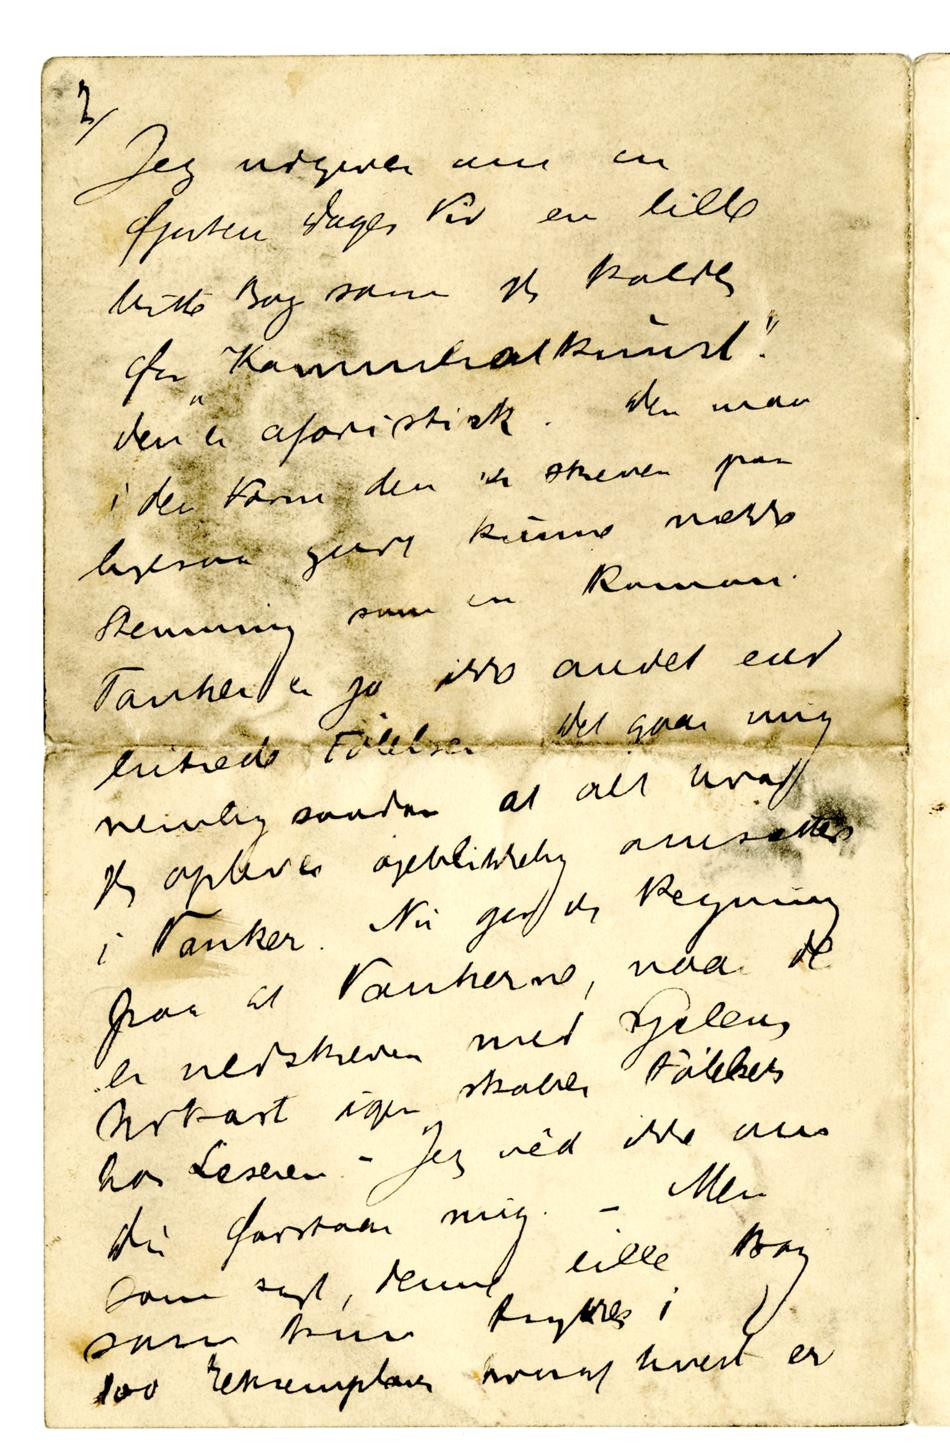 2/
Jeg udgiver om en
fjorten Dages Tid en lille
bitte Bog som jeg kalder
for „Kammeratkunst".
den er aforistisk. den maa
i den Form den er skreven paa
ligesaa godt kunne vække
Stemning som en Roman.
Tanker er jo ikke andet end
Følelser det gaar mig
nemlig saadan at alt hvad
jeg oplever øjeblikkelig omsættes
i Tanker. Nu gør jeg Regning
paa at Tankerne, naar de
er nedskreven med Sjælens
igen skaber Følelser
hos Læseren – Jeg véd ikke om
du forstaar mig. – Men
som sagt, denne lille Bog
som kun trykkes i
100 Eksemplarer hvoraf hvert er